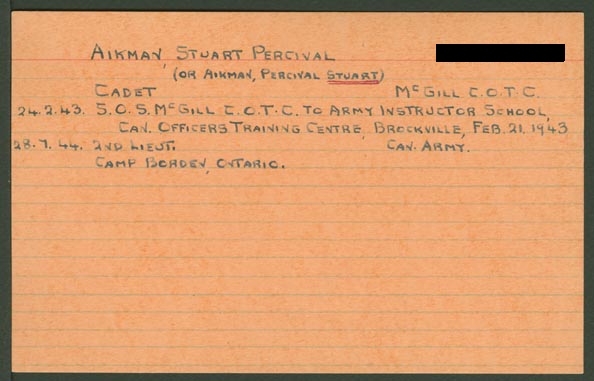 AIKMAN, STUART PERCIVAL
(OR AIKMAN, PERCIVAL STUART)
CADET McGILL C.O.T.C.
24.2.43. S.O.S. McGILL C.O.T.C. TO ARMY INSTRUCTOR SCHOOL,
CAN. OFFICERS TRAINING CENTRE, BROCKVILLE, FEB. 21. 1943
28.7.44. 2ND LIEUT. CAN. ARMY.
CAMP BORDEN, ONTARIO.